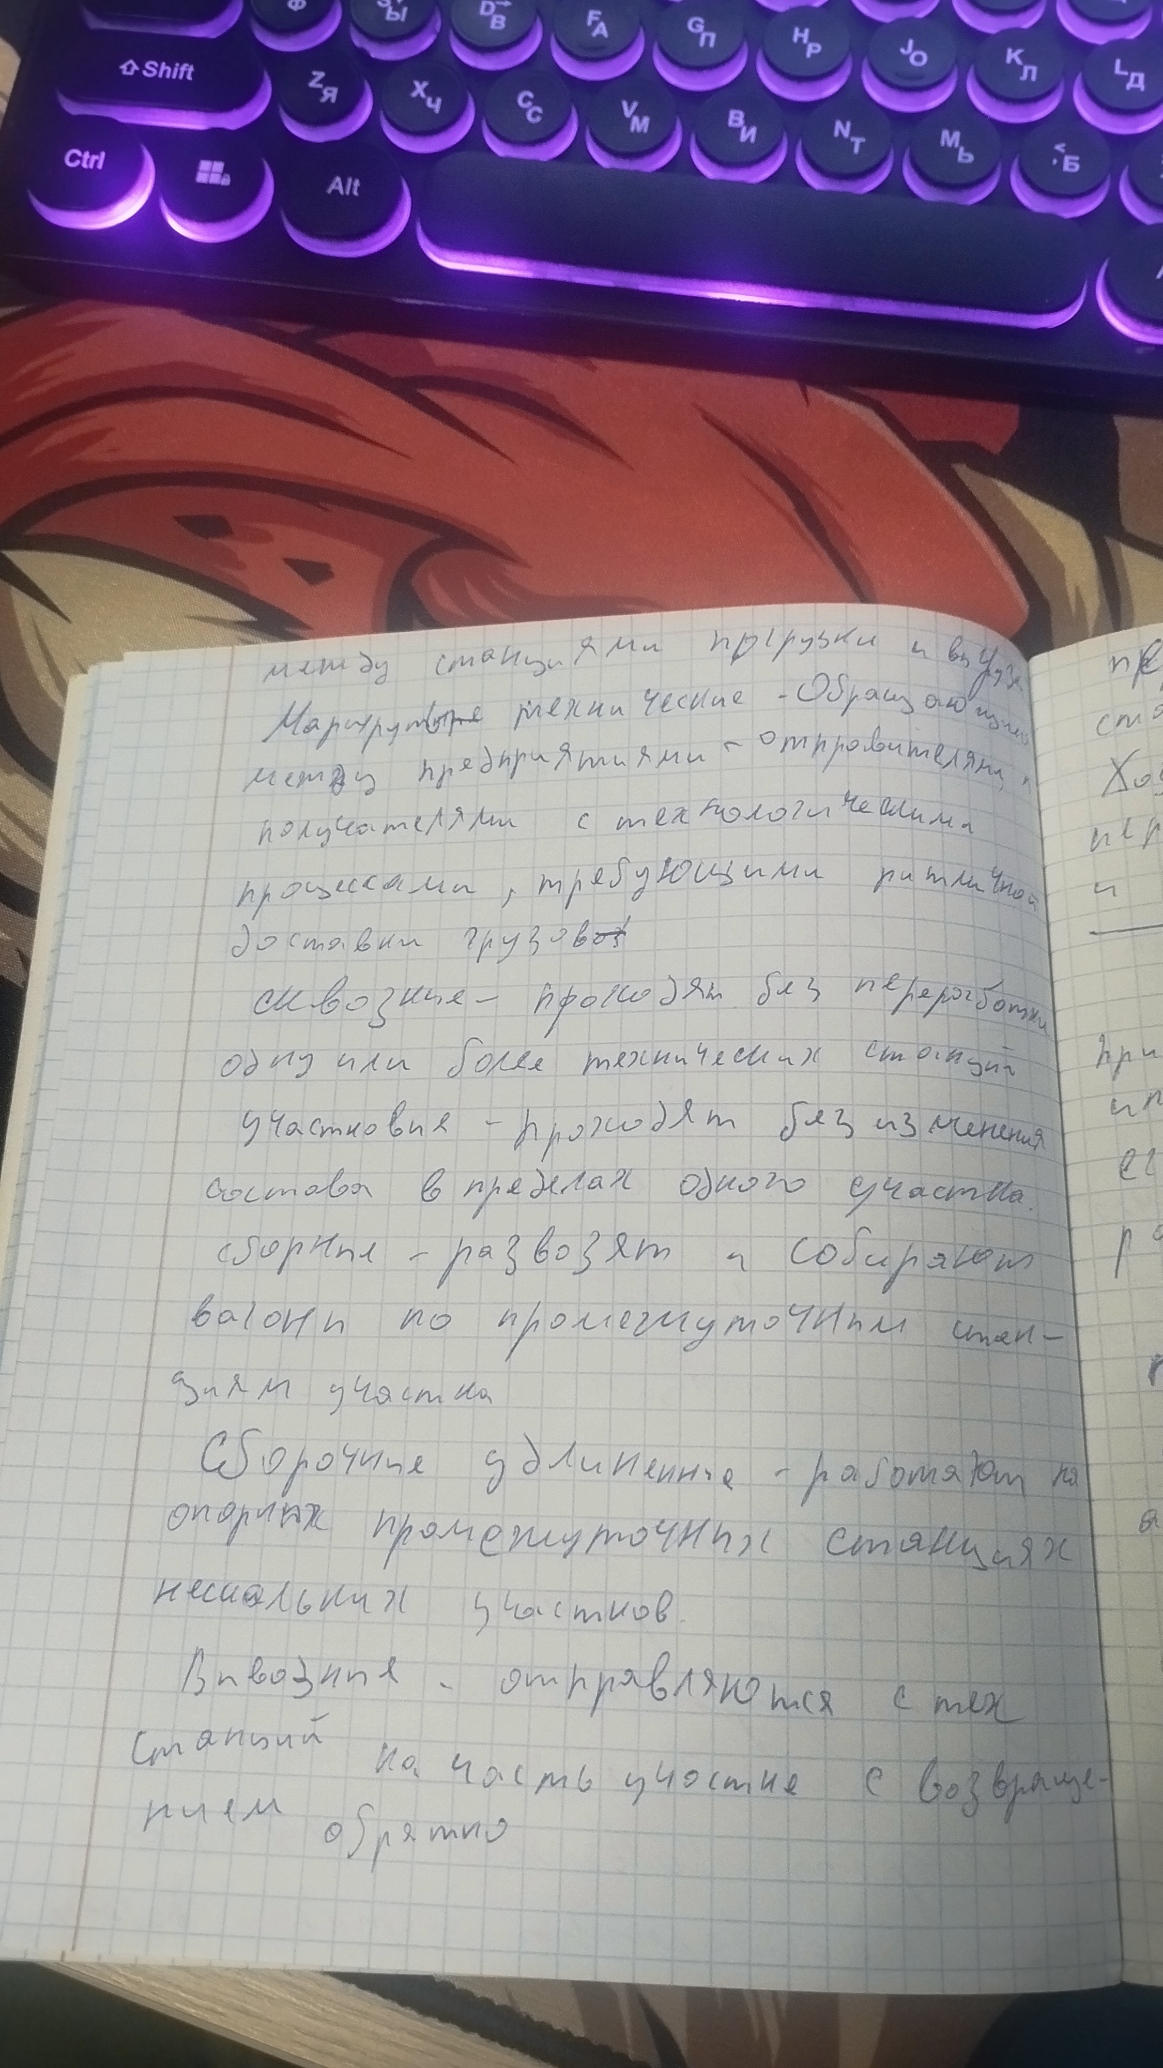 Ф Ы D В F А G П H Р J О K Л L Д
⇧Shift Z Я X Ч C С V М B И N Т M Ь < , Б
Ctrl Alt
между станциями погрузки и выгрузк
Маршрутные технические - Обращающиеся
между предприятиями - отправителями и
получателями с технологическими
процессами, требующими ритмичной
доставки грузов
сквозные - проходят без переработки
одну или более технических станций
участковые - проходят без изменения
состава в пределах одного участка.
сборные - развозят и собирают
вагоны по промежуточным стан-
циям участка
Сборочные удлиненные - работают на
опорных промежуточных станциях
нескольких участков.
Вывозные - отправляются с тех
станций на часть участка с возвраще-
нием обратно
пре
ста
Хо
пер
и
при
ип
ег
ра